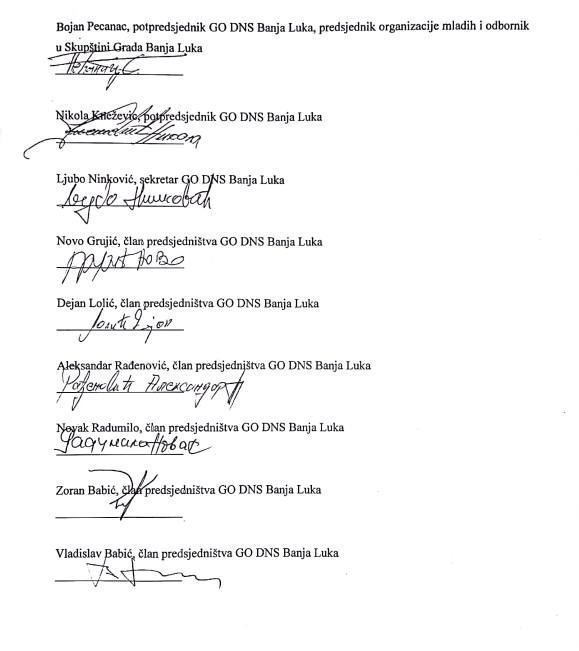 Bojan Pecanac, potpredsjednik GO DNS Banja Luka, predsjednik organizacije mladih i odbornik
u Skupštini Grada Banja Luka
Nikola Knežević, potpredsjednik GO DNS Banja Luka
Ljubo Ninković, sekretar GO DNS Banja Luka
Љубо Нинковић
Novo Grujić, član predsjedništva GO DNS Banja Luka
Грујић Ново
Dejan Lolić, član predsjedništva GO DNS Banja Luka
Aleksandar Rađenović, član predsjedništva GO DNS Banja Luka
Рађеновић Александар
Novak Radumilo, član predsjedništva GO DNS Banja Luka
Радумило Новак
Zoran Babić, član predsjedništva GO DNS Banja Luka
Vladislav Babić, član predsjedništva GO DNS Banja Luka